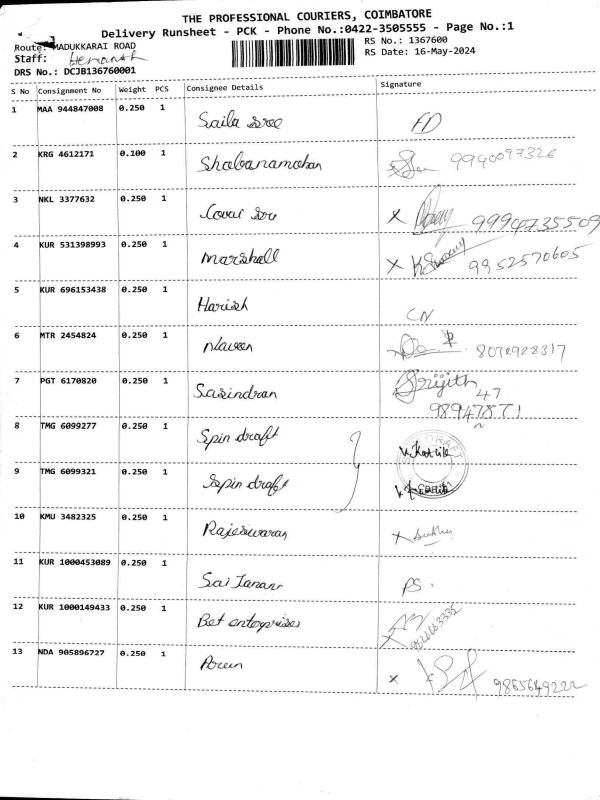 THE PROFESSIONAL COURIERS, COIMBATORE
Delivery Runsheet - PCK - Phone No.:0422-3505555 - Page No.:1
Route: MADUKKARAI ROAD RS No.: 1367600
Staff: Hemanth RS Date: 16-May-2024
DRS No.: DCJB136760001
S No Consignment No Weight PCS Consignee Details Signature
1 MAA 944847008 0.250 1 Saila Sree FD
2 KRG 4612171 0.100 1 Shobanamohan 9940097326
3 NKL 3377632 0.250 1 Covai Sre X 9994735509
4 KUR 531398993 0.250 1 Marshall X 9952570605
5 KUR 696153438 0.250 1 Harish CN
6 MTR 2454824 0.250 1 Naveen 8072928317
7 PGT 6170820 0.250 1 Sasindran Srijith
47
98947871
8 TMG 6099277 0.250 1 Spin draft V. Karthik
9 TMG 6099321 0.250 1 Spin draft
10 KMU 3482325 0.250 1 Rajeswaran X
11 KUR 1000453089 0.250 1 Sai Janani PS.
12 KUR 1000149433 0.250 1 Bet enterprises X
13 NDA 905896727 0.250 1 X 9865649222